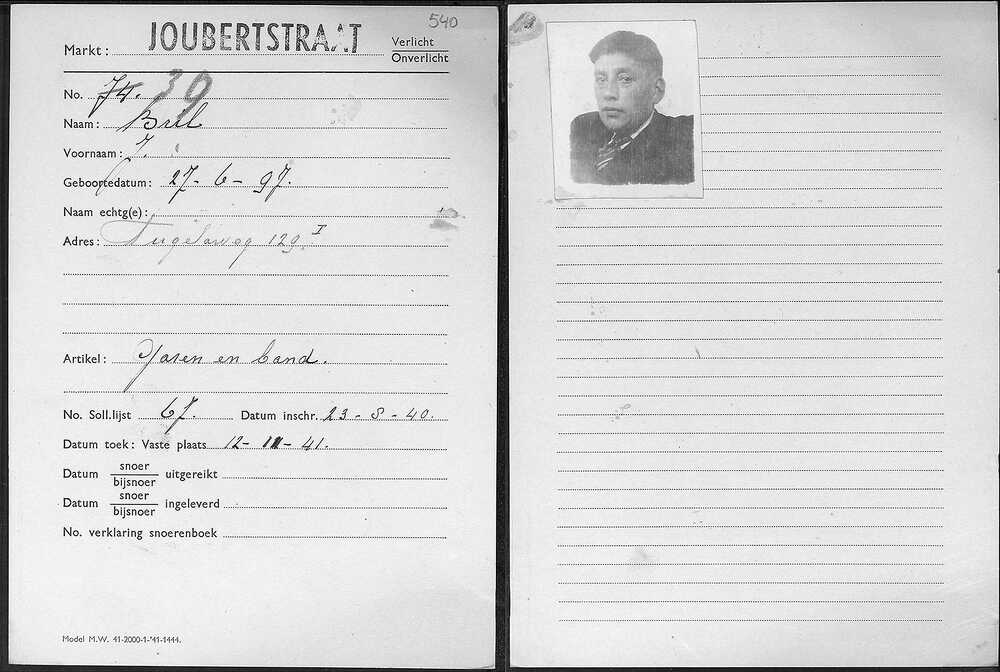 540
Markt: JOUBERTSTRAAT Verlicht
Onverlicht
No. 74. 39
Naam: Bril
Voornaam: J.
Geboortedatum: 27-6-97.
Naam echtg(e):
Adres: Tugelaweg 129 I
Artikel: Garen en band.
No. Soll.lijst 67. Datum inschr. 23-8-40.
Datum toek: Vaste plaats 12-11-41.
Datum snoer
bijsnoer uitgereikt
Datum snoer
bijsnoer ingeleverd
No. verklaring snoerenboek
Model M.W. 41-2000-1-'41-1444.